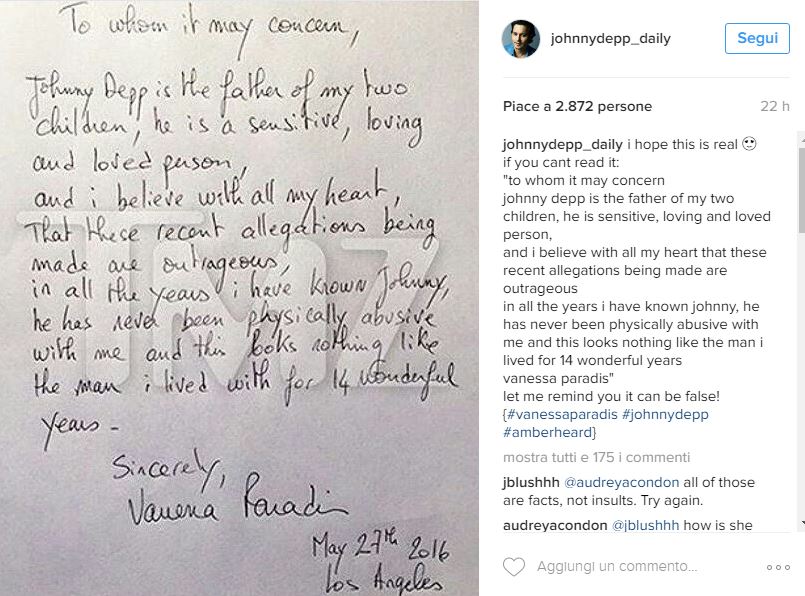 To whom it may concern,
Johnny Depp is the father of my two
children, he is a sensitive, loving
and loved person,
and i believe with all my heart,
That these recent allegations being
made are outrageous,
in all the years i have known Johnny,
he has never been physically abusive
with me and this looks nothing like
the man i lived with for 14 wonderful
years -
Sincerely,
Vanessa Paradis
May 27th 2016
Los Angeles
TMZ
johnnydepp_daily
Segui
Piace a 2.872 persone
22 h
johnnydepp_daily i hope this is real
if you cant read it:
"to whom it may concern
johnny depp is the father of my two
children, he is sensitive, loving and loved
person,
and i believe with all my heart that these
recent allegations being made are
outrageous
in all the years i have known johnny, he
has never been physically abusive with
me and this looks nothing like the man i
lived for 14 wonderful years
vanessa paradis"
let me remind you it can be false!
{#vanessaparadis #johnnydepp
#amberheard}
mostra tutti e 175 i commenti
jblushhh @audreyacondon all of those
are facts, not insults. Try again.
audreyacondon @jblushhh how is she
Aggiungi un commento...